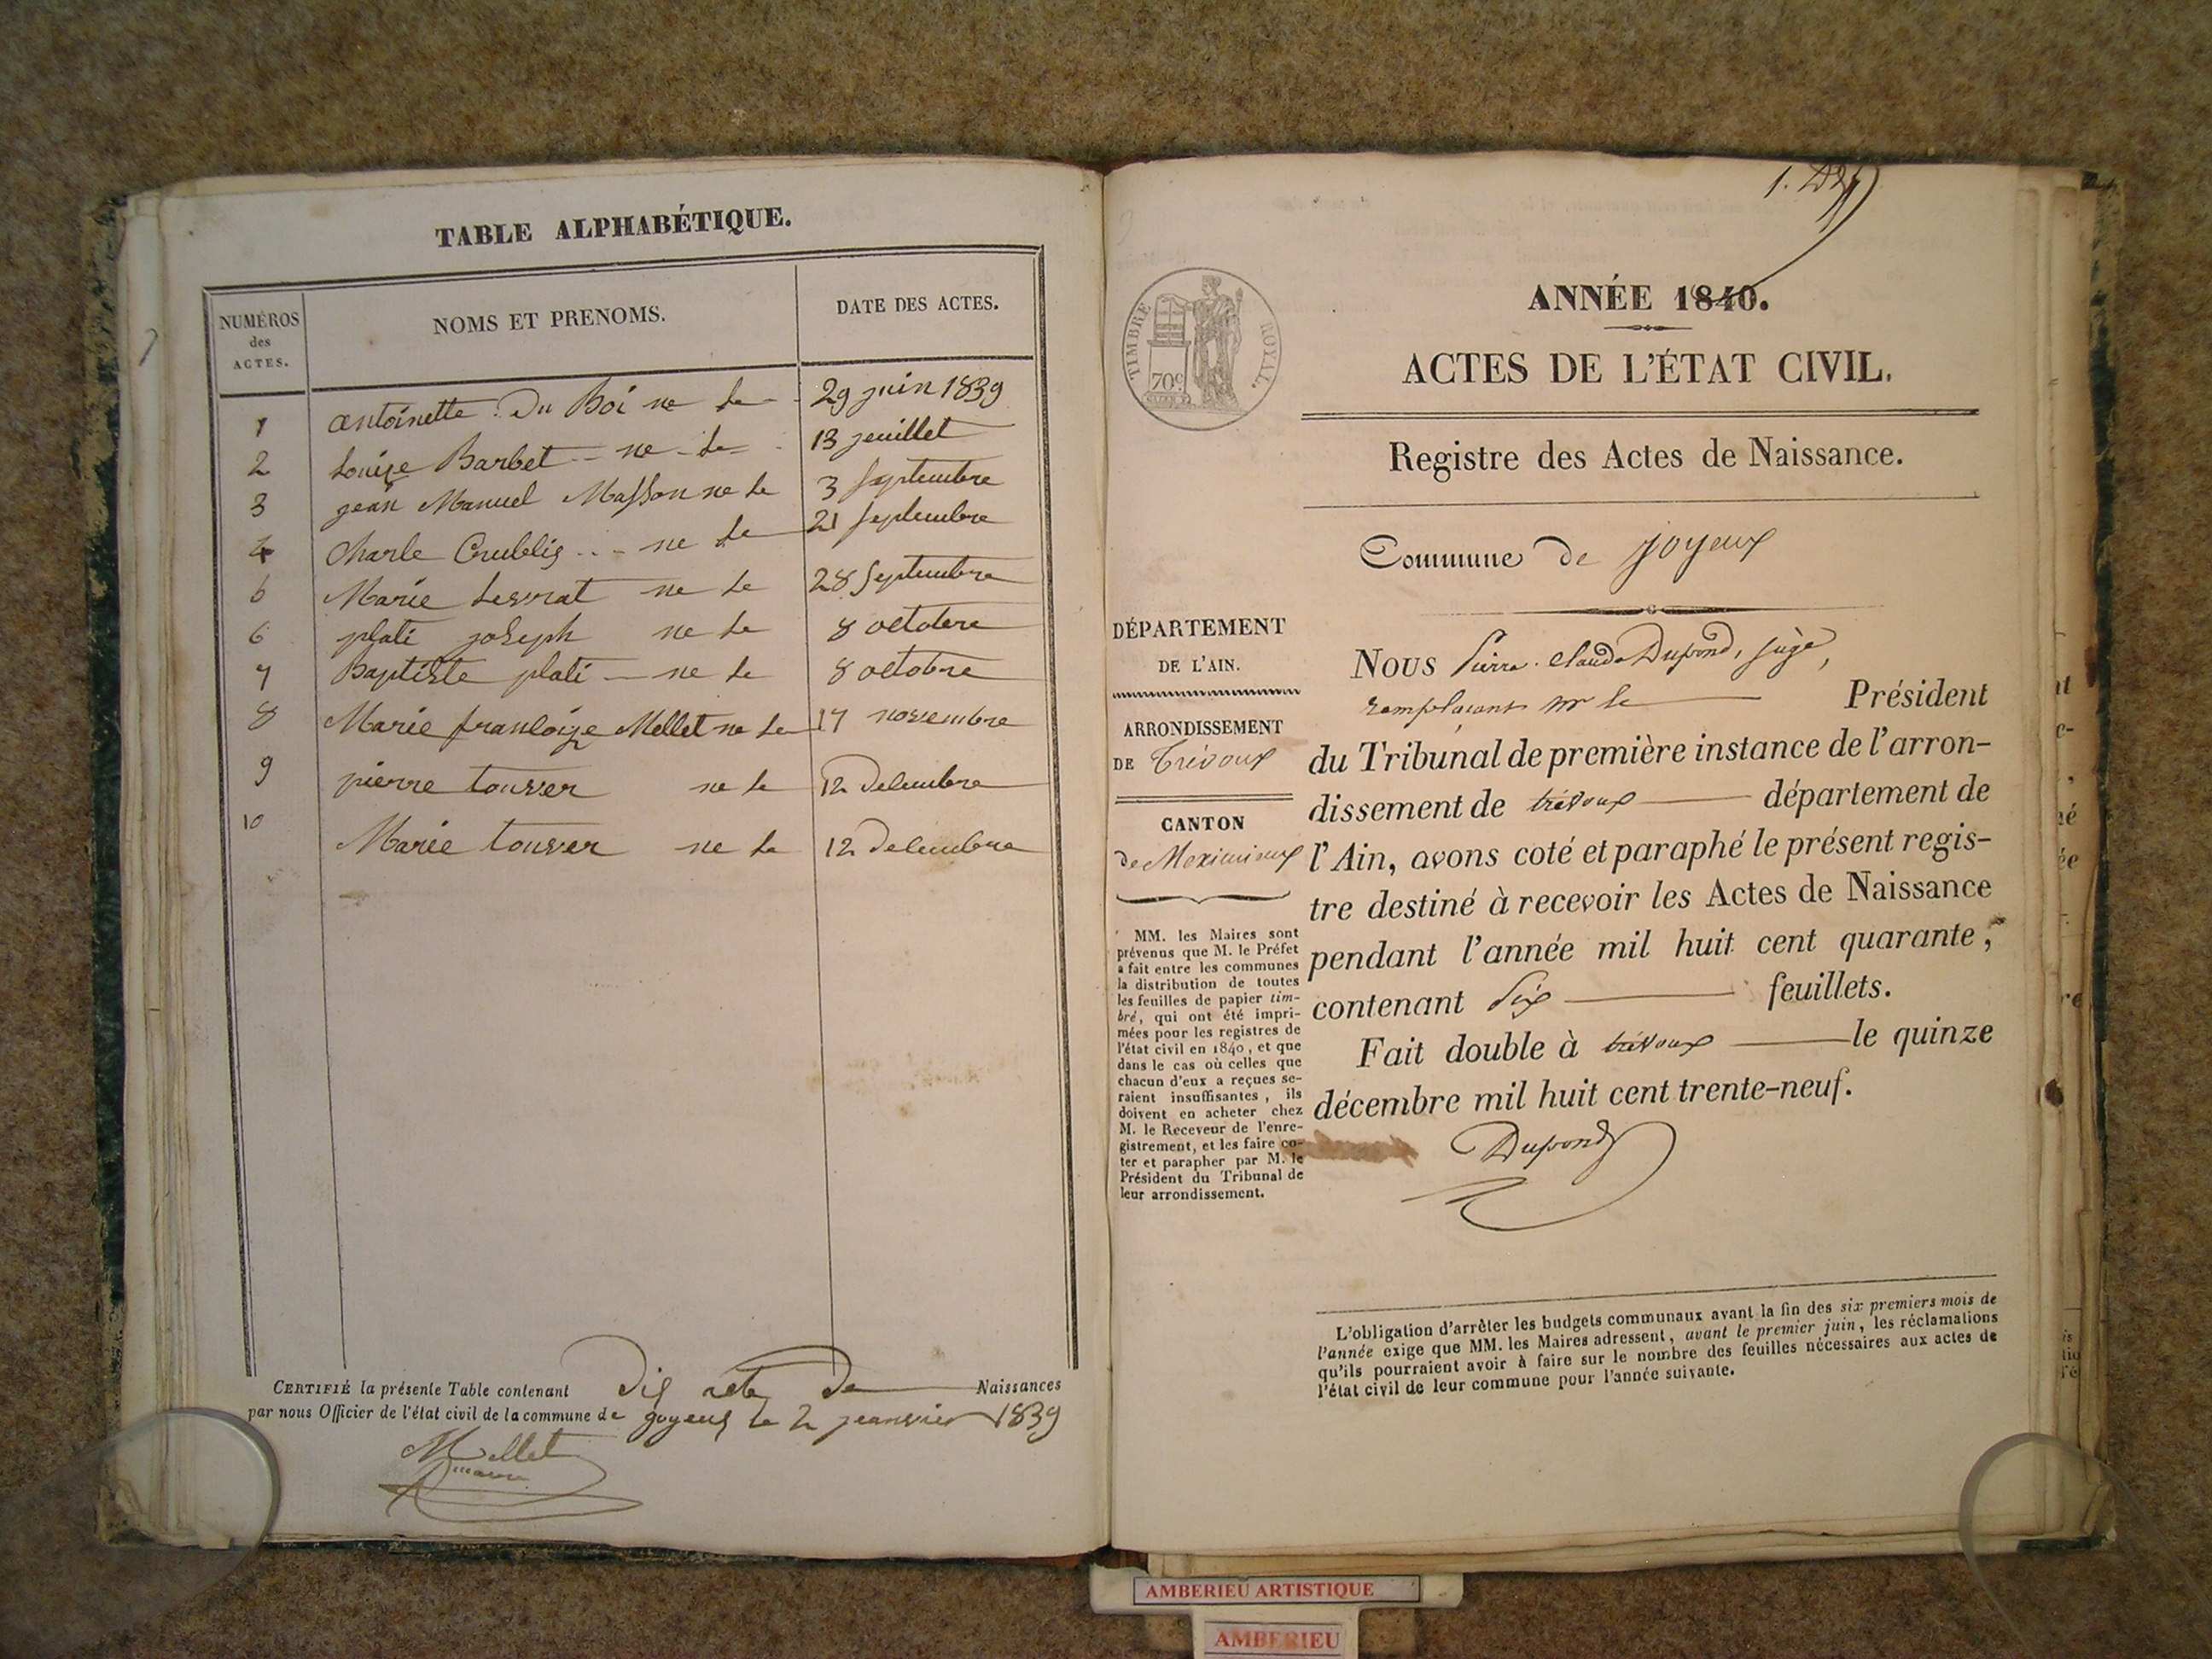 TABLE ALPHABÉTIQUE.
NUMÉROS des ACTES. NOMS ET PRENOMS. DATE DES ACTES.
1 antoinette Du Boi ne le 29 juin 1839
2 Louise Barbet ne le 13 jeuillet
3 jean Manuel Masson ne le 3 septembre
4 Charle Crublis ne le 21 septembre
5 Marie Lesvrat ne le 28 septembre
6 plati joseph ne le 8 octobre
7 Baptiste plati ne le 8 octobre
8 Marie francoize Mellet ne le 17 novembre
9 pierre touver ne le 12 decembre
10 Marie touver ne le 12 decembre
CERTIFIÉ la présente Table contenant dix acte de Naissances
par nous Officier de l'état civil de la commune de joyeux le 2 jeanvier 1839
Mellet
maire
ANNÉE 1840.
ACTES DE L'ÉTAT CIVIL.
Registre des Actes de Naissance.
TIMBRE ROYAL.
70c
Commune de joyeux
DÉPARTEMENT
DE L'AIN.
ARRONDISSEMENT
DE Trévoux
CANTON
de Meximieux
MM. les Maires sont
prévenus que M. le Préfet
a fait entre les communes
la distribution de toutes
les feuilles de papier tim-
bré, qui ont été impri-
mées pour les registres de
l'état civil en 1840, et que
dans le cas où celles que
chacun d'eux a reçues se-
raient insuffisantes, ils
doivent en acheter chez
M. le Receveur de l'enre-
gistrement, et les faire co-
ter et parapher par M. le
Président du Tribunal de
leur arrondissement.
Nous Pierre Claude Dupond, juge,
remplaçant mr le Président
du Tribunal de première instance de l'arron-
dissement de trévoux département de
l'Ain, avons coté et paraphé le présent regis-
tre destiné à recevoir les Actes de Naissance
pendant l'année mil huit cent quarante,
contenant Six feuillets.
Fait double à trévoux le quinze
décembre mil huit cent trente-neuf.
Dupond
L'obligation d'arrêter les budgets communaux avant la fin des six premiers mois de
l'année exige que MM. les Maires adressent, avant le premier juin, les réclamations
qu'ils pourraient avoir à faire sur le nombre des feuilles nécessaires aux actes de
l'état civil de leur commune pour l'année suivante.
AMBERIEU ARTISTIQUE
AMBERIEU